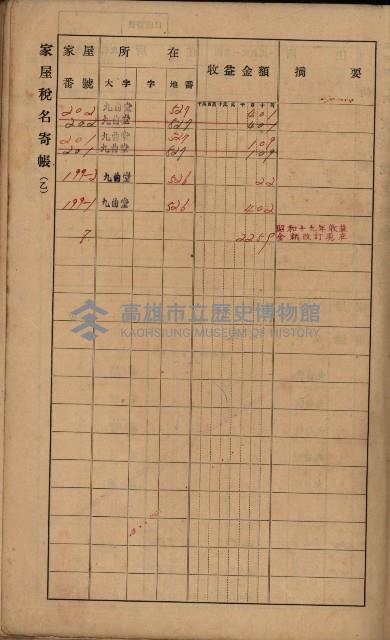 家屋稅名寄帳(乙)
家屋番號 所在 收益金額 摘要
大字 字 地番 十 百 千 十 圓
202 九曲堂 527 401
202 九曲堂 527 401
201 九曲堂 527 109
201 九曲堂 527 109
199-2 九曲堂 526 22
199-1 九曲堂 526 402
7 2259 昭和十九年收益
金額改訂現在
高雄市立歷史博物館
KAOHSIUNG MUSEUM OF HISTORY